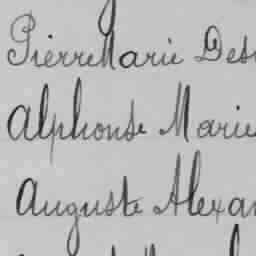 Pierre Marie Des
Alphonse Marie
Auguste Alexan